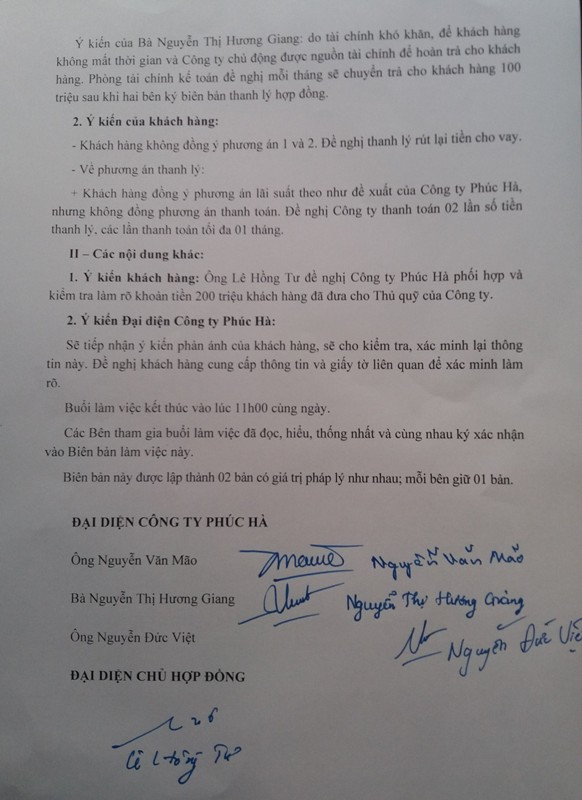 Ý kiến của Bà Nguyễn Thị Hương Giang: do tài chính khó khăn, để khách hàng
không mất thời gian và Công ty chủ động được nguồn tài chính để hoàn trả cho khách
hàng. Phòng tài chính kế toán đề nghị mỗi tháng sẽ chuyển trả cho khách hàng 100
triệu sau khi hai bên ký biên bản thanh lý hợp đồng.
2. Ý kiến của khách hàng:
- Khách hàng không đồng ý phương án 1 và 2. Đề nghị thanh lý rút lại tiền cho vay.
- Về phương án thanh lý:
+ Khách hàng đồng ý phương án lãi suất theo như đề xuất của Công ty Phúc Hà,
nhưng không đồng phương án thanh toán. Đề nghị Công ty thanh toán 02 lần số tiền
thanh lý, các lần thanh toán tối đa 01 tháng.
II – Các nội dung khác:
1. Ý kiến khách hàng: Ông Lê Hồng Tư đề nghị Công ty Phúc Hà phối hợp và
kiểm tra làm rõ khoán tiền 200 triệu khách hàng đã đưa cho Thủ quỹ của Công ty.
2. Ý kiến Đại diện Công ty Phúc Hà:
Sẽ tiếp nhận ý kiến phản ánh của khách hàng, sẽ cho kiểm tra, xác minh lại thông
tin này. Đề nghị khách hàng cung cấp thông tin và giấy tờ liên quan để xác minh làm
rõ.
Buổi làm việc kết thúc vào lúc 11h00 cùng ngày.
Các Bên tham gia buổi làm việc đã đọc, hiểu, thống nhất và cùng nhau ký xác nhận
vào Biên bản làm việc này.
Biên bản này được lập thành 02 bản có giá trị pháp lý như nhau; mỗi bên giữ 01 bản.
ĐẠI DIỆN CÔNG TY PHÚC HÀ
Ông Nguyễn Văn Mão Nguyễn Văn Mão
Bà Nguyễn Thị Hương Giang Nguyễn Thị Hương Giang
Ông Nguyễn Đức Việt
Nguyễn Đức Việ
ĐẠI DIỆN CHỦ HỢP ĐỒNG
Lê Hồng Tư